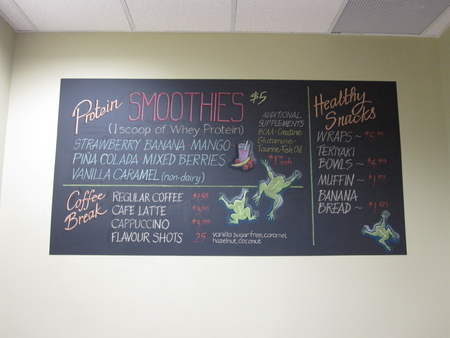 Protein SMOOTHIES $5
(1 scoop of Whey Protein)
STRAWBERRY BANANA MANGO
PIÑA COLADA MIXED BERRIES
VANILLA CARAMEL (non-dairy)
ADDITIONAL
SUPPLEMENTS
BCAA - Creatine
Glutamine -
Taurine - Fish Oil
Coffee
Break
REGULAR COFFEE $1.50
CAFE LATTE
CAPPUCCINO
FLAVOUR SHOTS .25
vanilla sugarfree, caramel,
hazelnut, coconut
Healthy
Snacks
WRAPS ~
TERIYAKI
BOWLS ~
MUFFIN ~ $1.50
BANANA
BREAD ~ $1.50